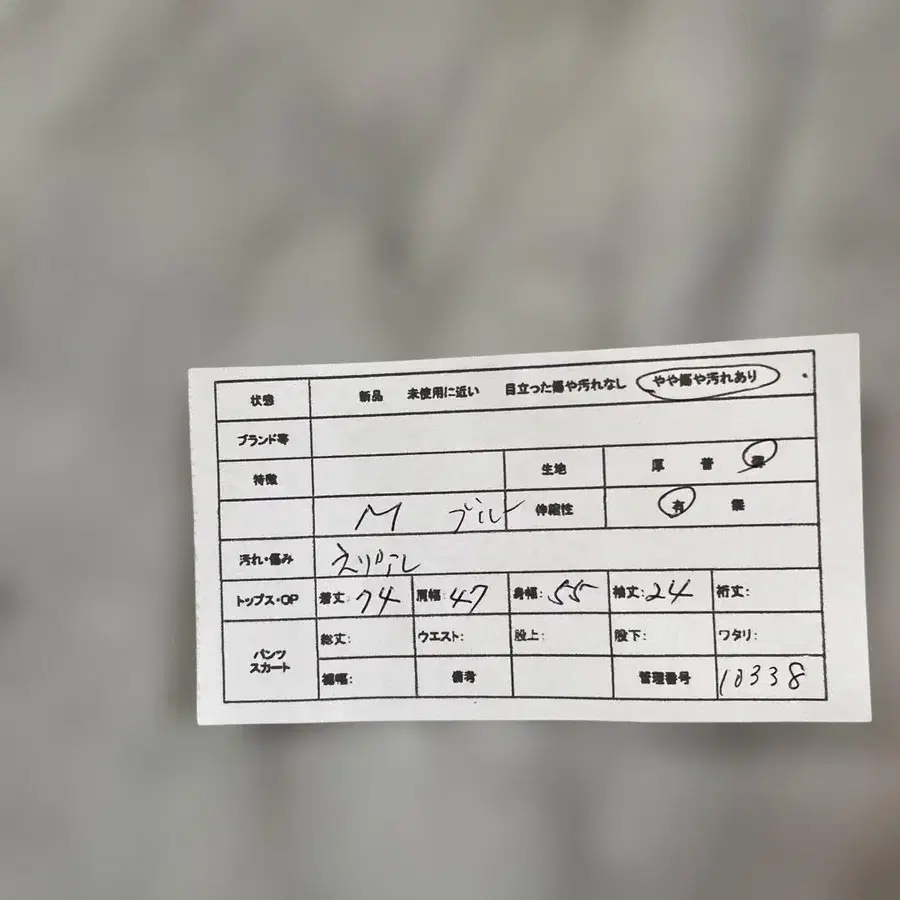 状態 新品 未使用に近い 目立った傷や汚れなし やや傷や汚れあり
ブランド等
特徴 生地 厚 普 薄
M ブルー 伸縮性 有 無
汚れ・傷み えり
トップス・OP 着丈:74 肩幅:47 身幅:55 袖丈:24 裄丈:
パンツ スカート 総丈: ウエスト: 股上: 股下: ワタリ:
裾幅: 備考 管理番号 10338